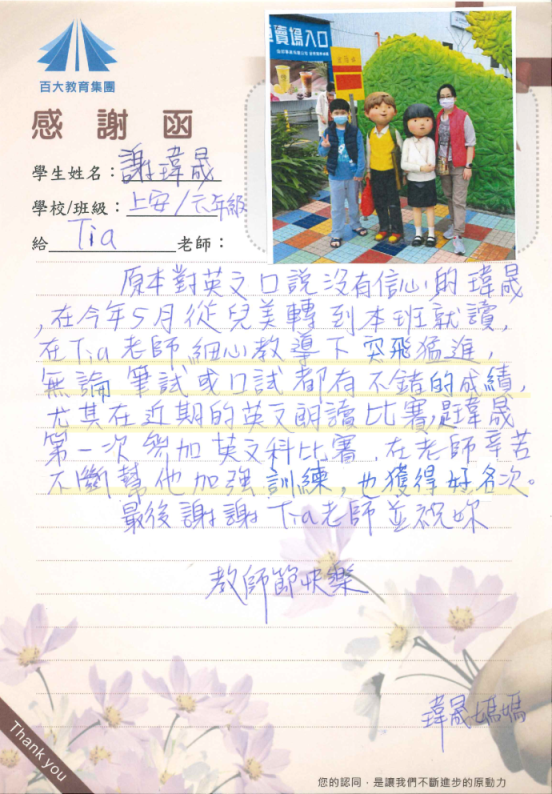 百大教育集團
車賣場入口
感謝函
學生姓名：謝瑋晟
學校/班級：上安/六年級
給 Tia 老師：
原本對英文口說沒有信心的瑋晟
，在今年5月從兒美轉到本班就讀，
在Tia老師細心教導下突飛猛進，
無論筆試或口試都有不錯的成績，
尤其在近期的英文朗讀比賽，是瑋晟
第一次參加英文科比賽，在老師辛苦
不斷幫他加強訓練，也獲得好名次。
最後謝謝Tia老師並祝妳
教師節快樂
瑋晟媽媽
Thank you
您的認同，是讓我們不斷進步的原動力